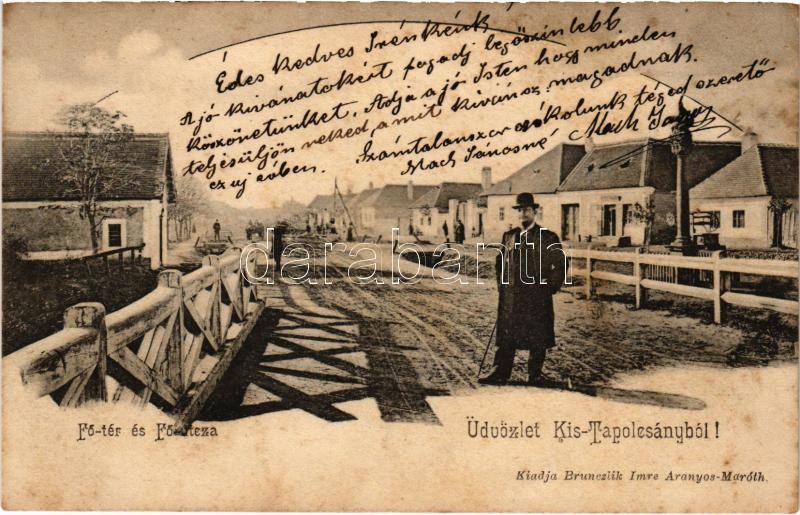 Édes kedves Irénkénk
A jó kivánatokért fogadj legőszintébb
köszönetünket, Adja a jó Isten hogy minden
teljesüljön neked, a mit kivánsz magadnak.
ez uj évben. Számtalanszor csókolunk téged szerető
Mach Jánosné Mach János
darabanth.com
Fő-tér és Fő-utcza
Üdvözlet Kis-Tapolcsányból!
Kiadja Brunczlik Imre Aranyos-Maróth.